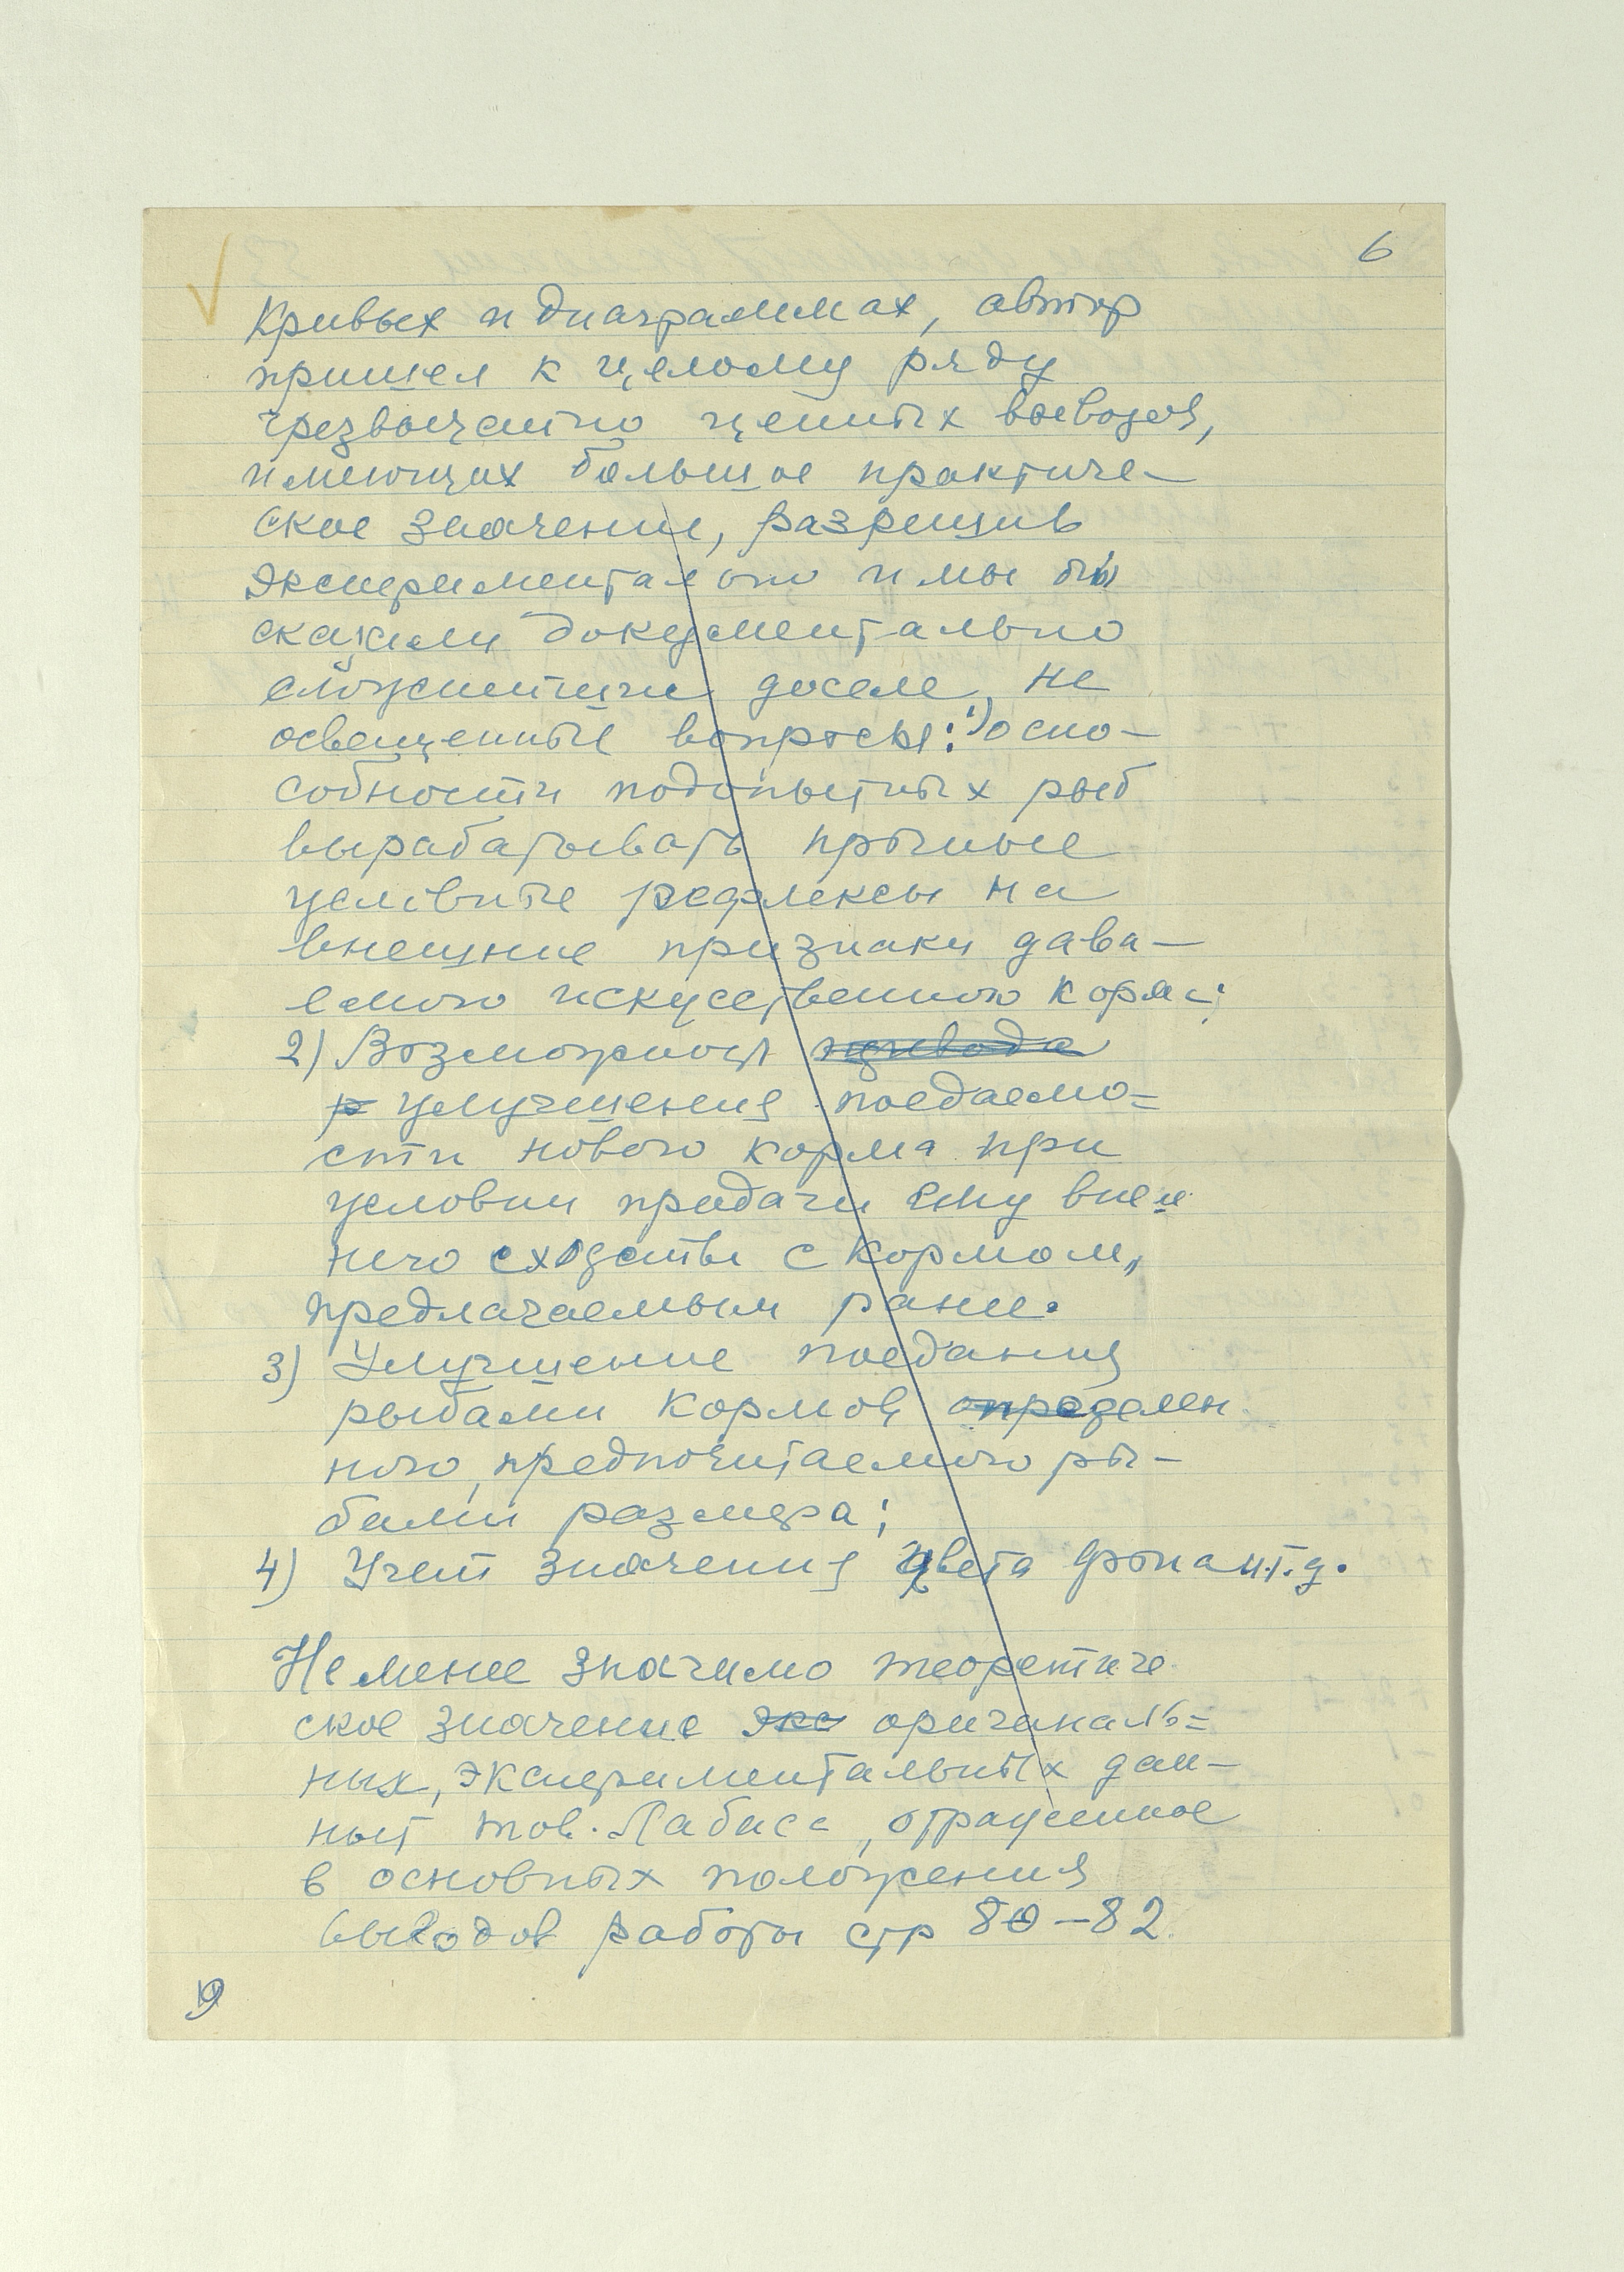 6
Кривых и диаграммах, автор
пришел к целому ряду
чрезвычайно ценных выводов,
имеющих большое практиче-
ское значение, разрешив
экспериментально и мы бы
сказали документально
сложнейшие доселе не
освещенные вопросы: 1) о спо-
собности подопытных рыб
вырабатывать прочные
условные рефлексы на
внешние признаки дава-
емого искусственного корма;
2) Возможность
улучшения поедаемо=
сти нового корма при
условии придачи ему внеш
него сходства с кормом,
предлагаемым ранее.
3) Улучшение поедания
рыбами кормов определен
ного, предпочитаемого ры-
бами размера;
4) Учет значения цвета фона и.т.д.
Не менее значимо теоретиче
ское значение экс оригиналь=
ных, экспериментальных дан-
ных тов. Лабаса, отраженное
в основных положения
выводов работы стр 80-82.